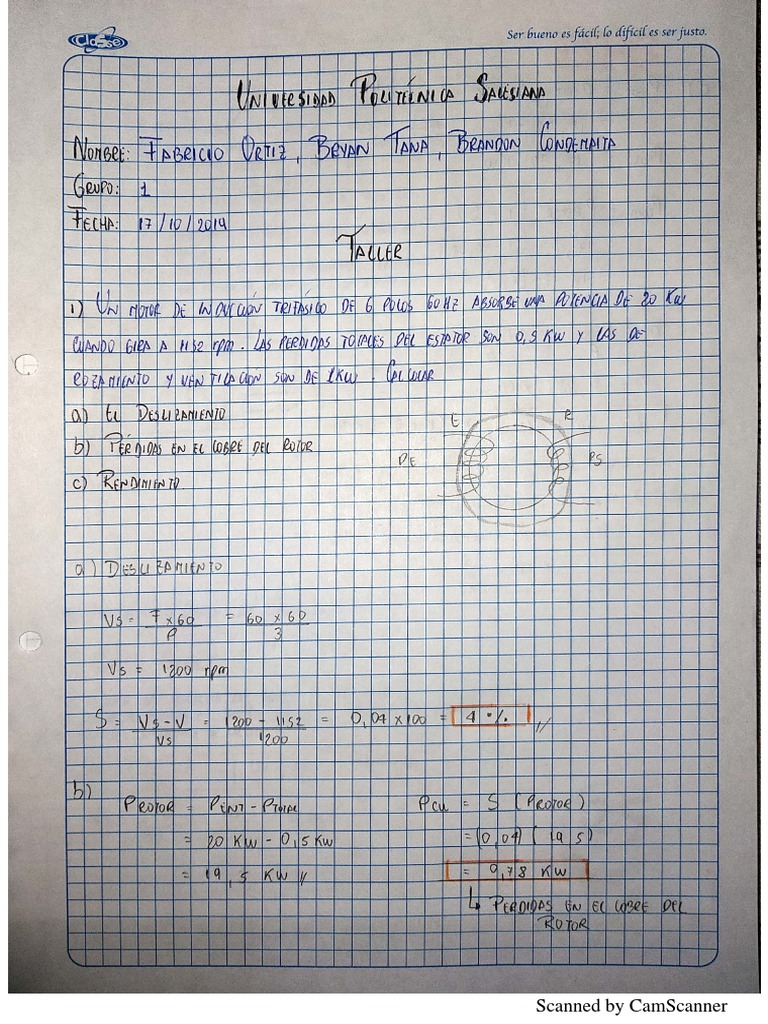 Classe
Ser bueno es fácil; lo difícil es ser justo.
UNIVERSIDAD POLITÉCNICA SALESIANA
NOMBRE: FABRICIO ORTIZ, BRYAN TANA, BRANDON CONDEMAITA
GRUPO: 1
FECHA: 17/10/2019
TALLER
1) UN MOTOR DE INDUCCIÓN TRIFÁSICO DE 6 POLOS 60HZ ABSORBE UNA POTENCIA DE 20 KW
CUANDO GIRA A 1152 rpm. LAS PERDIDAS TOTALES DEL ESTATOR SON 0,5 KW Y LAS DE
ROZAMIENTO Y VENTILACION SON DE 1KW. CALCULAR
a) EL DESLIZAMIENTO
b) PÉRDIDAS EN EL COBRE DEL ROTOR
c) RENDIMIENTO
E R
PE PS
a) DESLIZAMIENTO
Vs = f x 60 / P = 60 x 60 / 3
Vs = 1200 rpm
S = Vs - V / Vs = 1200 - 1152 / 1200 = 0,04 x 100 = 4 % //
b)
PROTOR = PENT - PTOTAL
= 20 KW - 0,5 KW
= 19,5 KW //
Pcu = S (PROTOR)
= (0,04) (19 5)
= 0,78 KW
↳ PERDIDAS EN EL COBRE DEL
ROTOR
Scanned by CamScanner